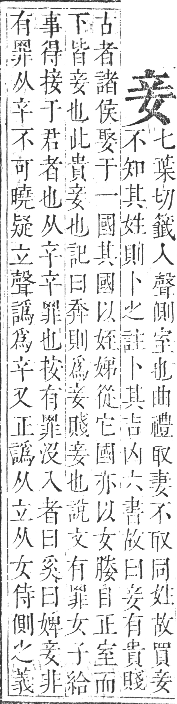 妾七葉切籖入聲側室也曲禮取妻不取同姓故買妾
不知其姓則卜之註卜其吉凶六書故曰妾有貴賤
古者諸侯娶于一國其國以姪娣從它國亦以女媵自正室而
下皆妾也此貴妾也記曰奔則爲妾賤妾也說文有罪女子給
事得接于君者也从䇂䇂罪也按有罪沒入者曰奚曰婢妾非
有罪从䇂不可曉疑立聲譌爲䇂又正譌从立从女侍側之義